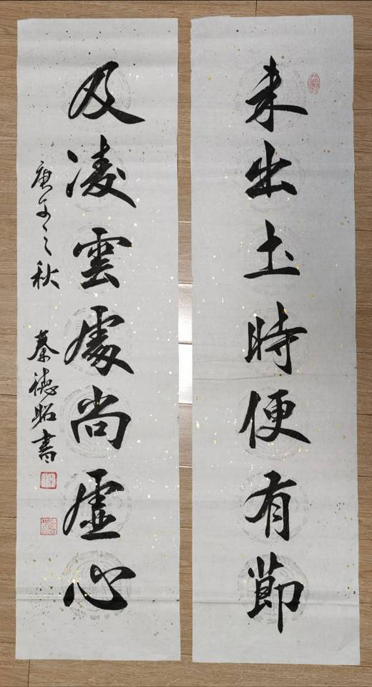 未出土時便有節
及凌雲處尚虛心
庚子之秋
秦德昭書